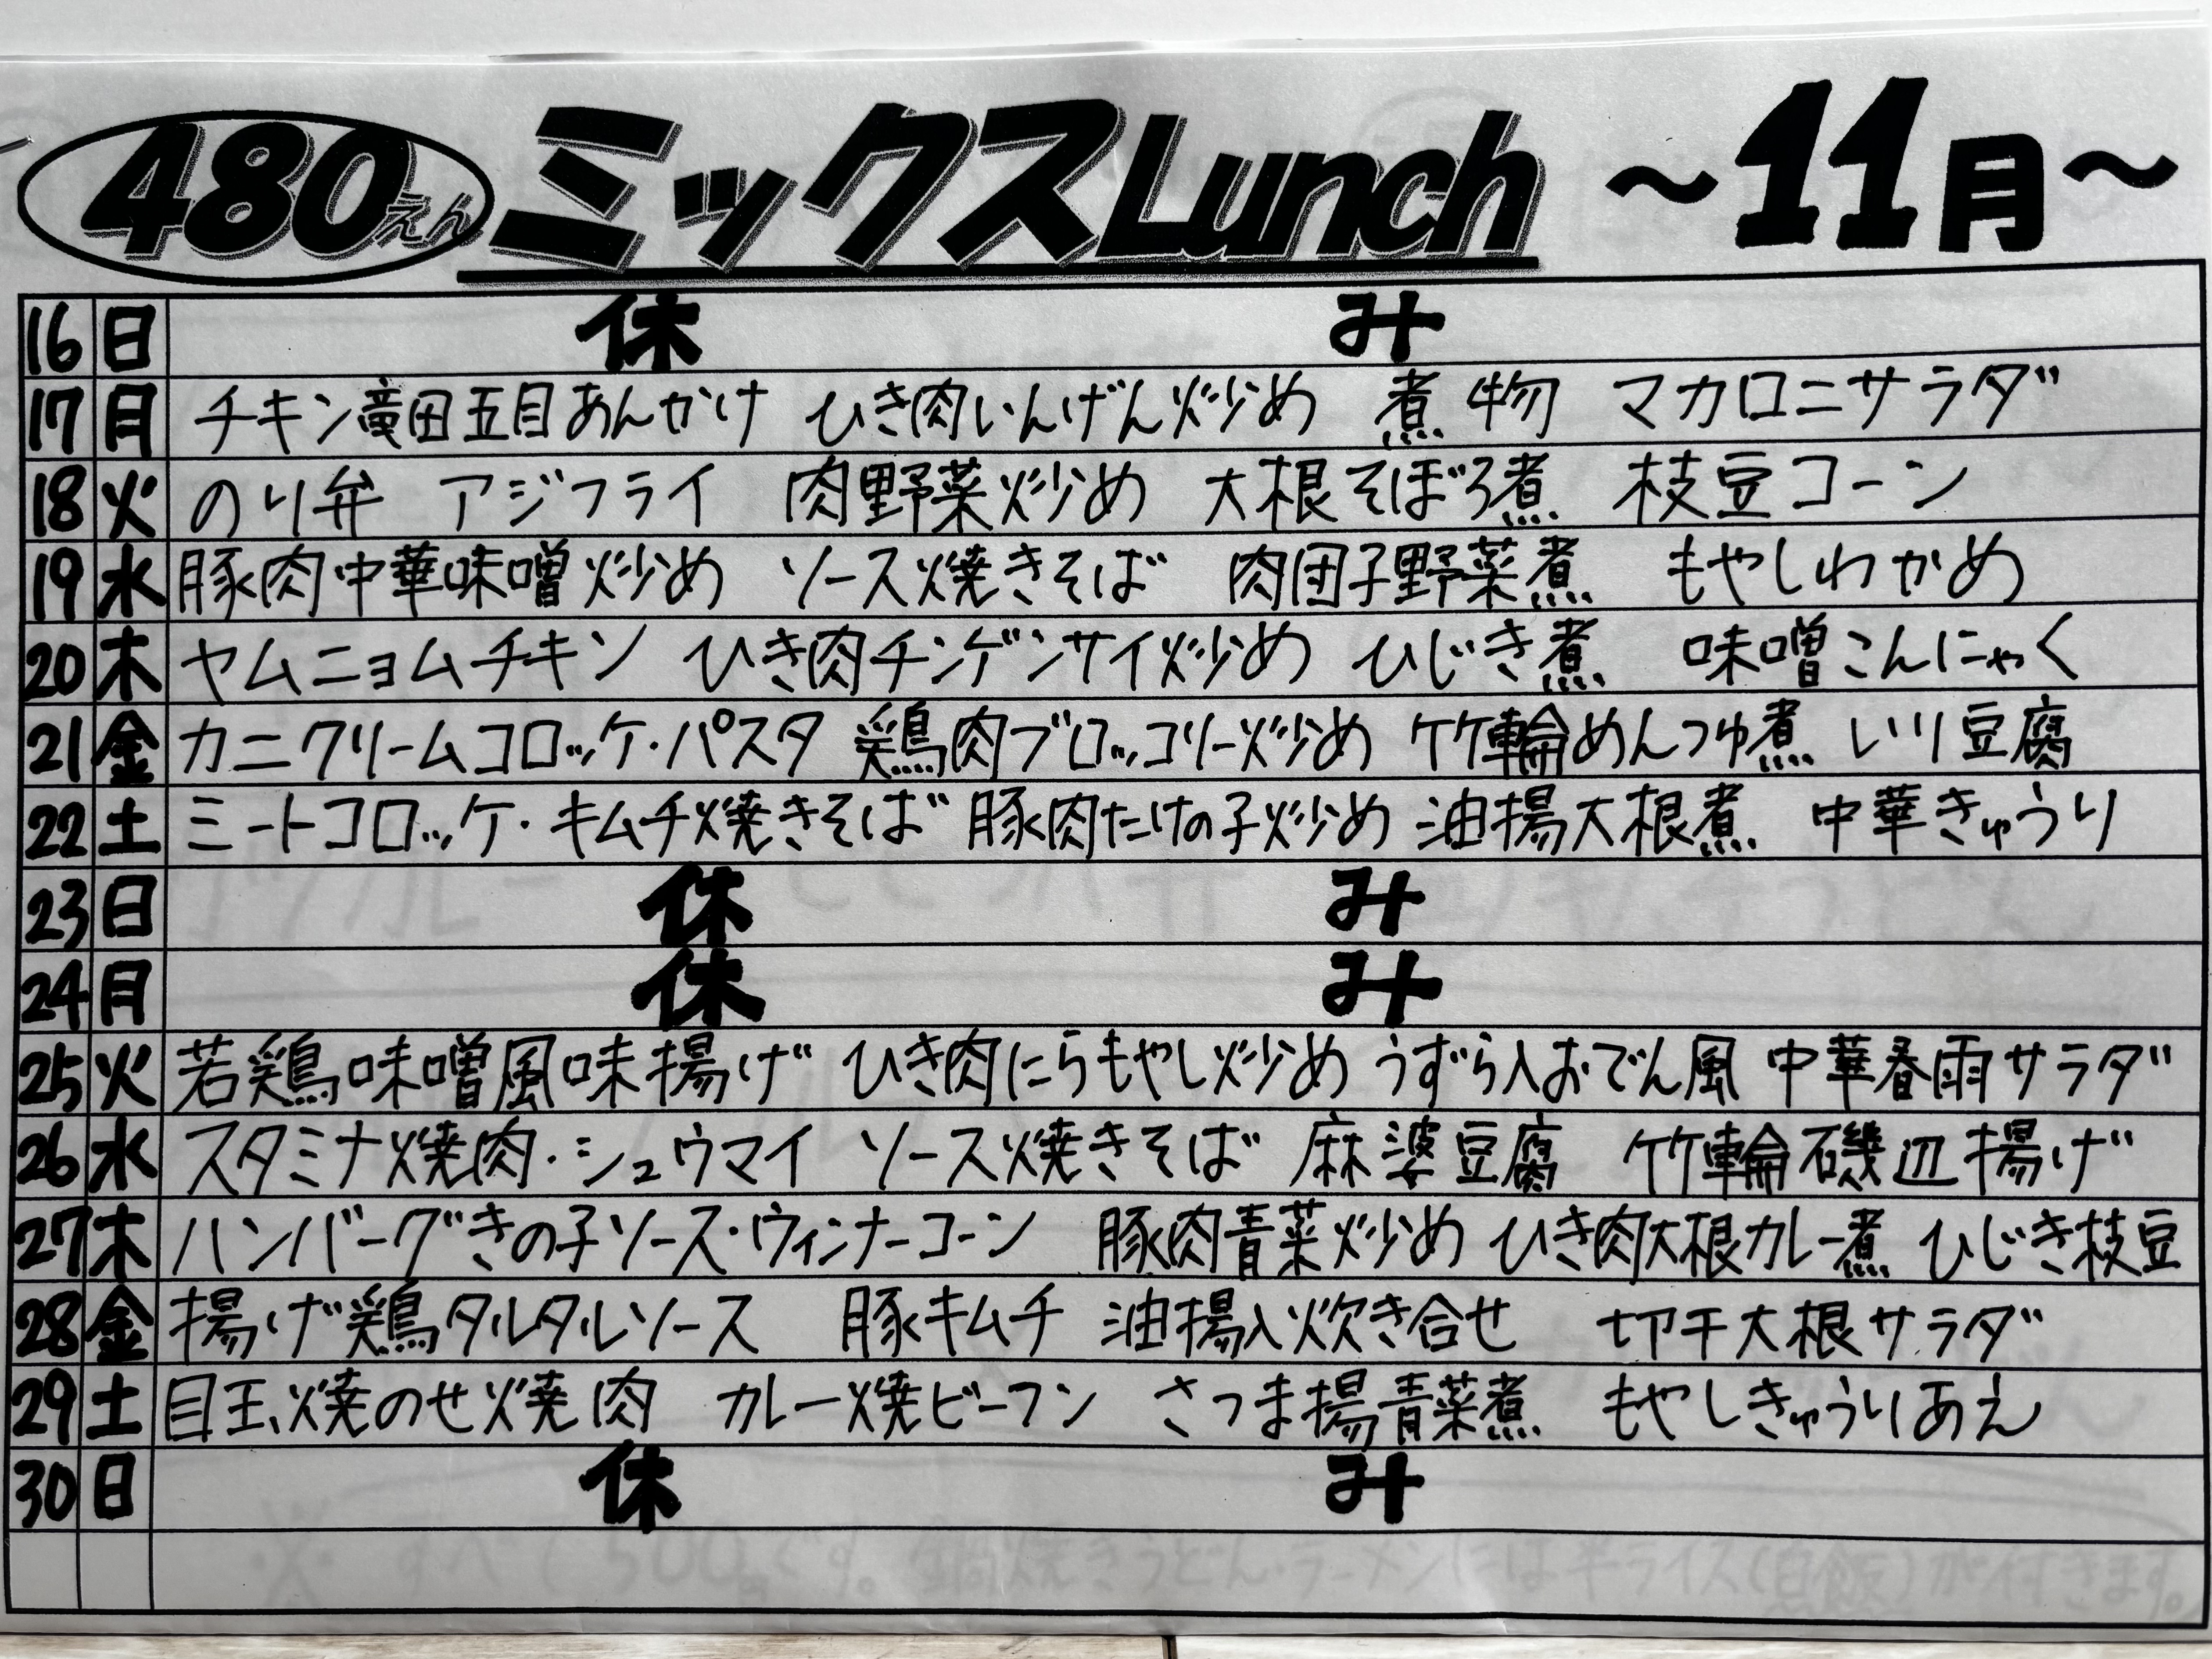 480えん ミックスLunch ～11月～
16 日 休み
17 月 チキン竜田五目あんかけ ひき肉いんげん炒め 煮物 マカロニサラダ
18 火 のり弁 アジフライ 肉野菜炒め 大根そぼろ煮 枝豆コーン
19 水 豚肉中華味噌炒め ソース焼きそば 肉団子野菜煮 もやしわかめ
20 木 ヤムニョムチキン ひき肉チンゲンサイ炒め ひじき煮 味噌こんにゃく
21 金 カニクリームコロッケ・パスタ 鶏肉ブロッコリー炒め 竹輪めんつゆ煮 いり豆腐
22 土 ミートコロッケ・キムチ焼きそば 豚肉たけの子炒め 油揚大根煮 中華きゅうり
23 日 休み
24 月 休み
25 火 若鶏味噌風味揚げ ひき肉にらもやし炒め うずら入おでん風 中華春雨サラダ
26 水 スタミナ焼肉・シュウマイ ソース焼きそば 麻婆豆腐 竹輪磯辺揚げ
27 木 ハンバーグきの子ソース・ウィンナーコーン 豚肉青菜炒め ひき肉大根カレー煮 ひじき枝豆
28 金 揚げ鶏タルタルソース 豚キムチ 油揚入炊き合せ 切干大根サラダ
29 土 目玉焼のせ焼肉 カレー焼ビーフン さつま揚青菜煮 もやしきゅうりあえ
30 日 休み